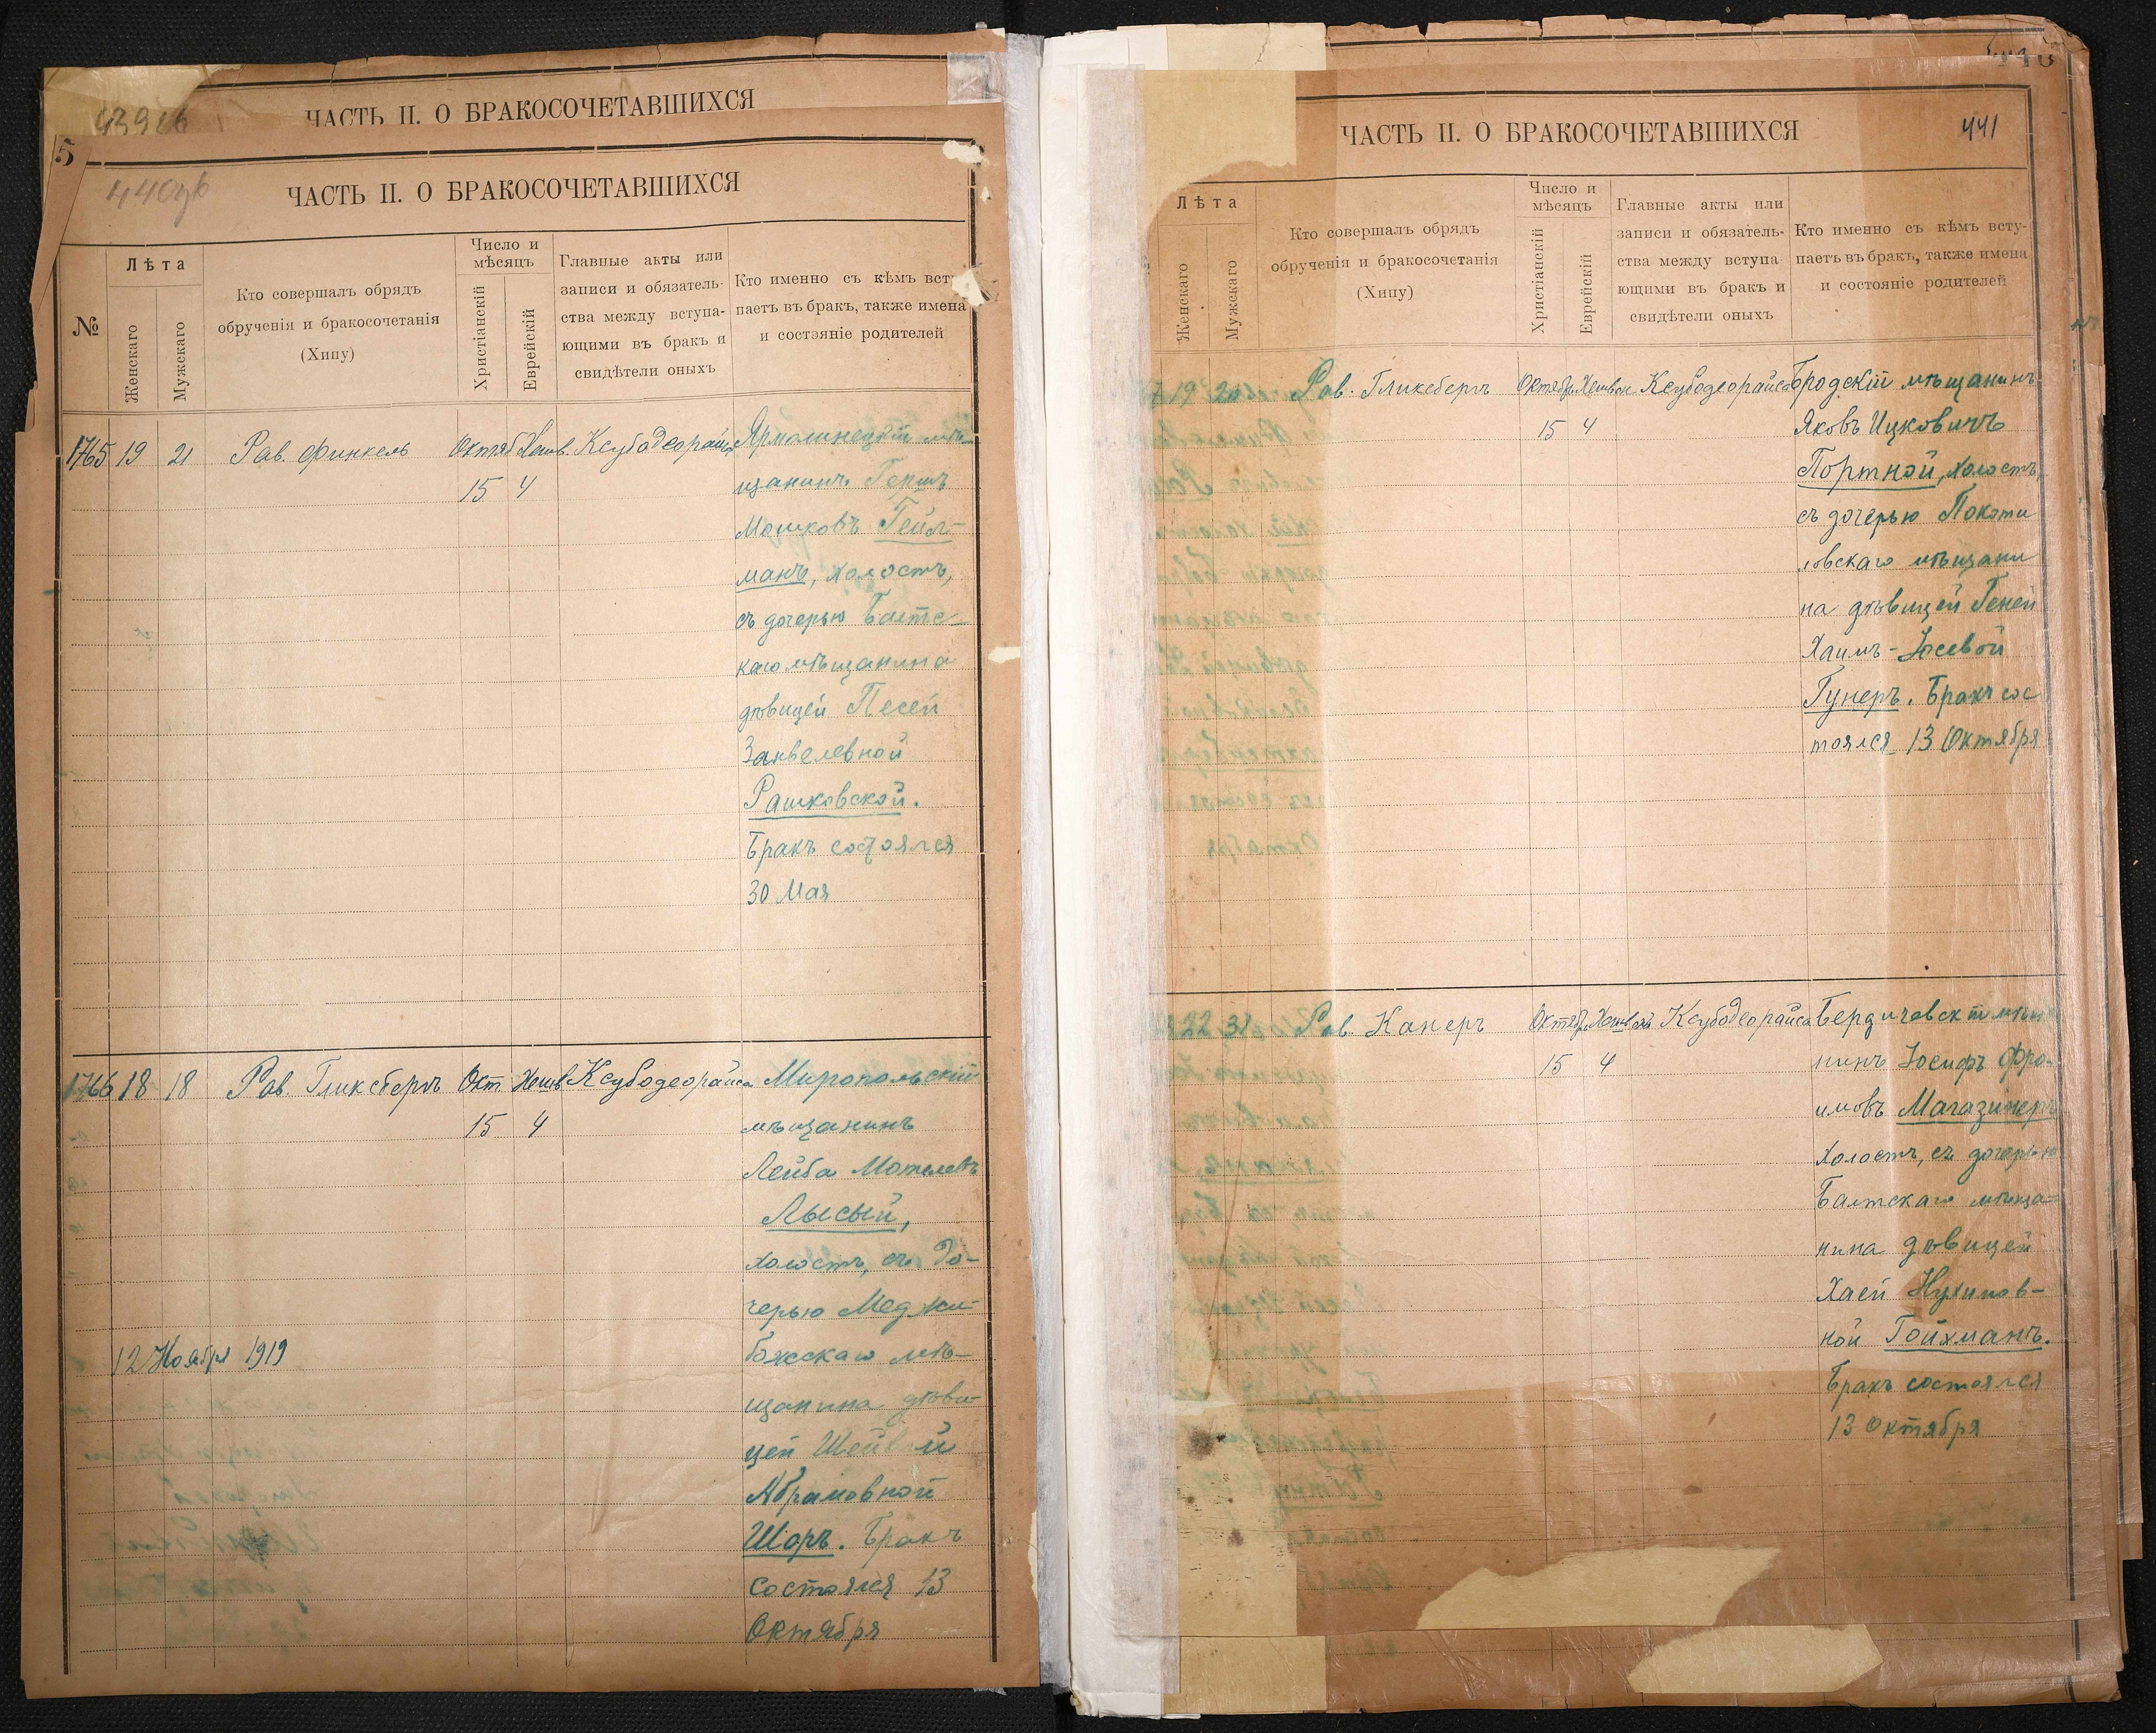 ЧАСТЬ II. О БРАКОСОЧЕТАВШИХСЯ
5
440
ЧАСТЬ II. О БРАКОСОЧЕТАВШИХСЯ
№
Лѣта
Женскаго
Мужскаго
Кто совершалъ обрядъ
обрученія и бракосочетанія
(Хипу)
Число и
мѣсяцъ
Христіанскій
Еврейскій
Главные акты или
записи и обязатель-
ства между вступа-
ющими въ бракъ и
свидѣтели оныхъ
Кто именно съ кѣмъ всту
паетъ въ бракъ, также имена
и состояніе родителей
1765 19 21 Рав. Финкель Октяб Хешв. Ксубадеорайса Ярмолинецкій мѣ-
15 4 щанинъ Гершъ
Мошковъ Гейл-
манъ, холостъ,
съ дочерью Балтс-
каго мѣщанина
дѣвицей Песей
Занвелевной
Рашковской.
Бракъ состоялся
30 Мая
1766 18 18 Рав. Гликсбергъ Окт. Хешв Ксубодеорайса Миропольскій
15 4 мѣщанинъ
Лейба Мотелевъ
Лысый,
холостъ, съ до-
черью Меджи-
12 Ноября 1919 божскаго мѣ-
щанина дѣви-
цей
Абрамовной
Шоръ. Бракъ
состоялся 13
Октября
ЧАСТЬ II. О БРАКОСОЧЕТАВШИХСЯ
441
Лѣта
Женскаго
Мужскаго
Кто совершалъ обрядъ
обрученія и бракосочетанія
(Хипу)
Число и
мѣсяцъ
Христіанскій
Еврейскій
Главные акты или
записи и обязатель-
ства между вступа
ющими въ бракъ и
свидѣтели оныхъ
Кто именно съ кѣмъ всту-
паетъ въ бракъ, также имена
и состояніе родителей
19 Рав. Гликсбергъ Октябр Хешван Ксубодеорайса Городскій мѣщанинъ
15 4 Яковъ Ицковичъ
Портной, холостъ,
съ дочерью Покоти
ловскаго мѣщани
на дѣвицей Геней
Хаимъ-Іосевой
Гунеръ. Бракъ сос
тоялся 13 Октября
22 31 Рав. Канеръ Октяб. Хешван Ксубодеорайса Бердичевскій мѣща
15 4 нинъ Іосифъ Фро-
имовъ Магазинеръ
холостъ, съ дочерью
Балтскаго мѣща-
нина дѣвицей
Хаей Нухимов-
ной Гойхманъ.
Бракъ состоялся
13 Октября